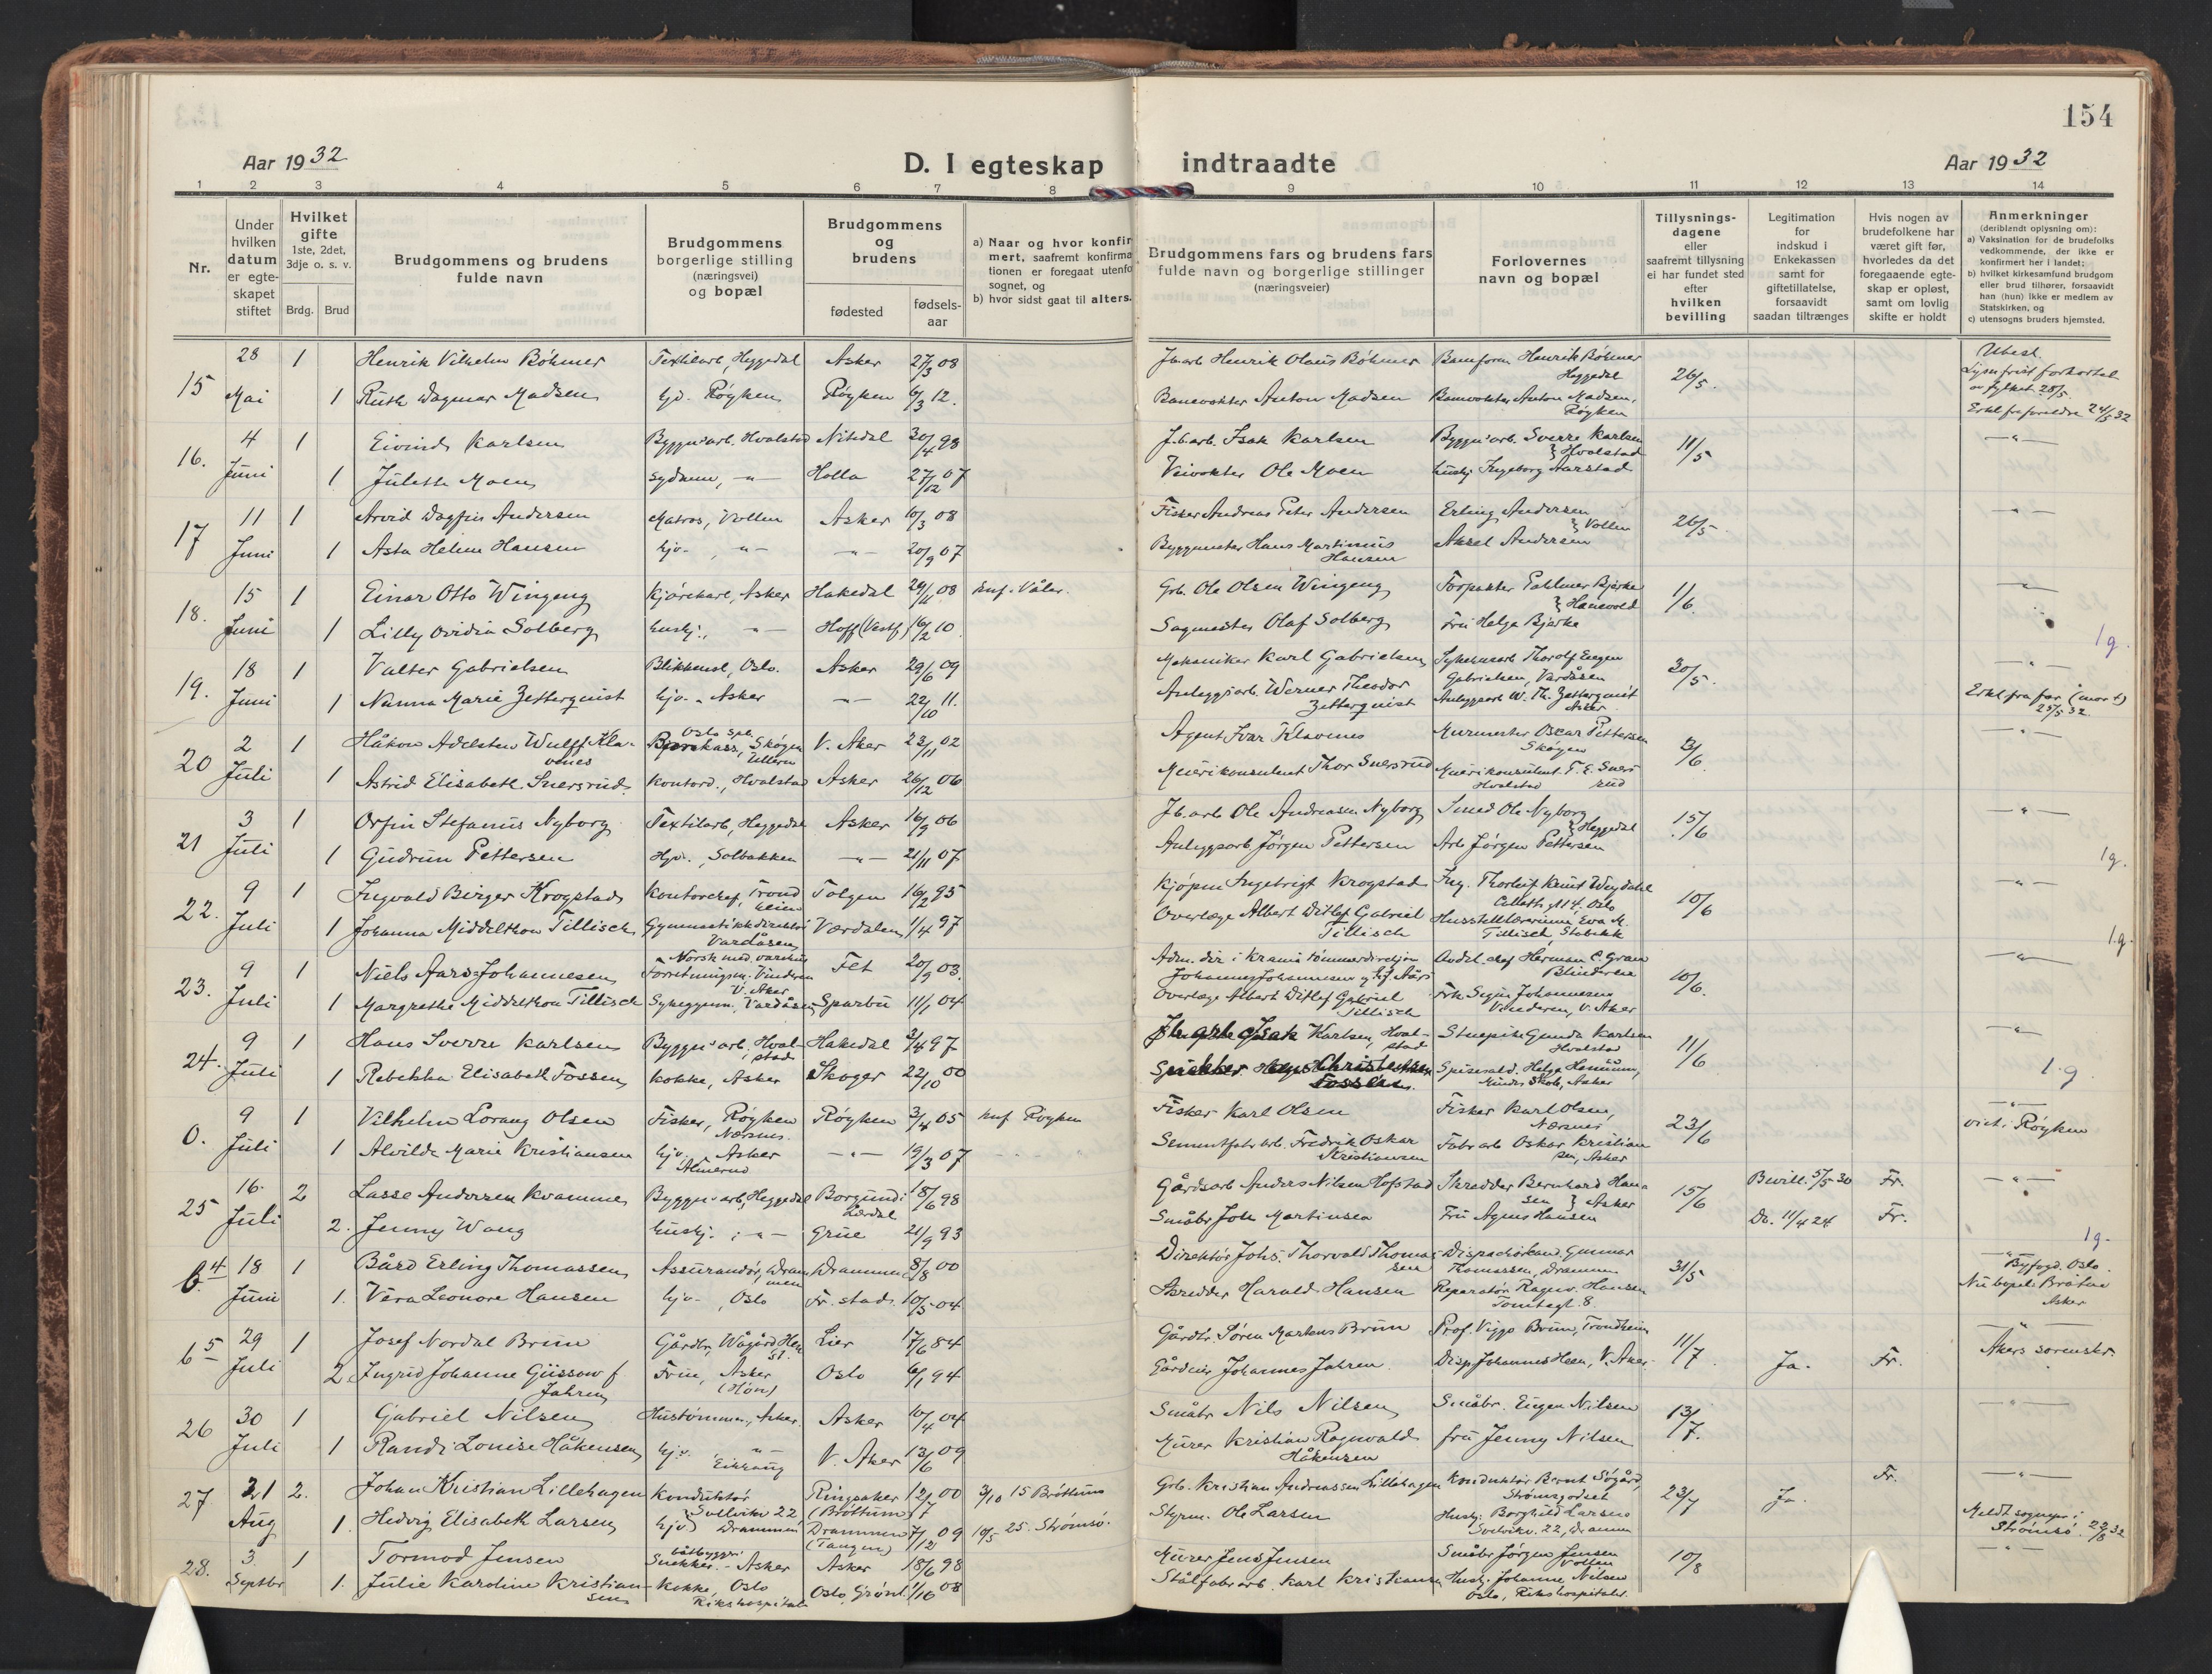 154
Aar 1932
D. I egteskap indtraadte
Aar 1932
1 2 3 4 5 6 7 8 9 10 11 12 13 14
Nr.
Under hvilken datum er egte-skapet stiftet
Hvilket gifte
1ste, 2det, 3dje o. s. v.
Brdg. Brud
Brudgommens og brudens fulde navn
Brudgommens borgerlige stilling (næringsvei) og bopæl
Brudgommens og brudens
fødested
fødsels-aar
a) Naar og hvor konfir
mert, saafremt konfirma
tionen er foregaat utenfo
sognet, og
b) hvor sidst gaat til alters.
Brudgommens fars og brudens fars
fulde navn og borgerlige stillinger
(næringsveier)
Forlovernes
navn og bopæl
Tillysnings-
dagene
eller
saafremt tillysning
ei har fundet sted
efter
hvilken
bevilling
Legitimation
for
indskud i
Enkekassen
samt for
giftetillatelse,
forsaavidt
saadan tiltrænges
Hvis nogen av
brudefolkene har
været gift før,
hvorledes da det
foregaaende egte-
skap er opløst,
samt om lovlig
skifte er holdt
Anmerkninger
(deriblandt oplysning om):
a) Vaksination for de brudefolks
vedkommende, der ikke er
konfirmert her i landet;
b) hvilket kirkesamfund brudgom
eller brud tilhører, forsaavidt
han (hun) ikke er medlem av
Statskirken, og
c) utensogns bruders hjemsted.
15 28 Mai 1 Henrik Vilhelm Böhmer Textilarb, Heggedal Asker 27/3 08 Jb.arb Henrik Olaus Böhmer Henrik Böhmer Heggedal 26/5.
1 Ruth Dagmar Madsen hjv. Röyken Röyken 6/3 12. Banevokter Anton Madsen Banevokter Anton Madsen, Röyken
16. 4 Juni 1 Eivind Karlsen Byggn.arb. Hvalstad Nitedal 30/4 98 Jb.arb. Isak Karlsen Byggn.arb. Sverre Karlsen Hvalstad 11/5 -"-
1 Julette Moen sydame, -"- Holla 27/12 07 Veivokter Ole Moen husbj. Ingeborg Aarstad
17 11 Juni 1 Arvid Dagfin Andersen Matros, Vollen Asker 10/3 08 Fisker Andreas Peter Andersen Erling Andersen Vollen 26/5 -"-
1 Asta Helene Hansen hjv. -"- -"- 20/9 07 Byggmester Hans Martinius Hansen Aksel Andersen
18. 15 Juni 1 Einar Otto Wingeng Kjörekarl, Asker Hakedal 29/11 08 knf. Våler. Grb. Ole Olsen Wingeng Forpakter Bjerke 1/6. -"-
1 Lilly Ovidia Solberg husbj., -"- Hoff (Vestf) 16/2 10. Sagmester Olaf Solberg Fru Helga Bjerke
1g.
19. 18 Juni 1 Valter Gabrielsen Blikkensl, Oslo. Asker 29/6 09 Mekaniker Karl Gabrielsen Thorolf Eugen Gabrielsen, Vardåsen 30/5. -"-
1 Nanna Marie Zetterquist hjv. - Asker -"- 22/10 11. Anleggsarb. Werner Theodor Zetterquist Anleggsarb W. Th. Zetterquist Asker Erkl fra far (mor †) 25/5 32.
20 2 Juli 1 Håkon Adelsten Wulff Klavenes Oslo spb. Skögen Ullern V. Aker 23/11 02 Agent Ivar Klavenes Murmester Oscar Pettersen Skögen -"-
1 Astrid Elisabeth Snersrud. Kontord., Hvalstad Asker 26/12 06 Meierikonsulent Thor Snersrud Meierikonsulent T. E. Snersrud Hvalstad
21 3 Juli 1 Orfin Stefanus Nyborg Textilarb, Heggedal Asker 16/9 06 Jb. arb Ole Andreasen Nyborg Smed Ole Nyborg Heggedal 15/6 -"-
1 Gudrun Pettersen Hjv., Solbakken -"- 21/11 07 Anleggsarb Jörgen Pettersen Arb Jörgen Pettersen
1g.
22. 9 Juli 1 Ingvald Birger Krogstad Kontorchef, Trondheim Tolgen 16/2 95 Kjöpm Ingebrigt Krogstad Ing. Thorleif Knut Weydahl Colletts g 14. Oslo 10/6 -"-
1 Johanna Middelthon Tillisch Gymnastikkdirektör Vardåsen Værdalen 11/4 97 Overlæge Albert Ditlef Gabriel Tillisch Husstellærerinne Eva M. Tillisch Stabekk
1.g.
23. 9 Juli 1 Niels Aars Johannesen Norsk med. varehus Forretningsm. Vinderen V. Aker Fet 20/9 03. Adm. dir i Krania tömmerdireksjon Johannes Johannesen Avdel.chef Herman C. Gran Blinderen 10/6. -"-
1 Margrethe Middelthon Tillisch Sykegymn. Vardåsen Sparbu 11/1 04 Overlæge Albert Ditlef Gabriel Tillisch Frk Johannesen Vinderen, V. Aker
24. 9 Juli 1 Hans Sverre Karlsen Byggn.arb. Hvalstad Hakedal 3/4 97 Jb. arb Isak Karlsen, Hvalstad Stuepike Gunda Karlsen Hvalstad 11/6 -"-
1 Rebekka Elisabeth Fossen Kokke, Asker Skoger 22/10 00 Snekker Christensen Fossen. Helga Asker
1.g
0. 9 Juli 1 Vilhelm Lorang Olsen Fisker, Röyken Nærsnes. Röyken 3/4 05 knf Röyken Fisker Karl Olsen Fisker Karl Olsen, Nærsnes 23/6 -"- viet i Röyken
1 Alvilda Marie Kristiansen hjv. Asker -"- 19/3 07 Sementfabr arb. Fredrik Oskar Kristiansen Fabr arb Oskar Kristiansen, Asker
25 16. Juli 2 Lasse Andersen Kvamme Byggn.arb, Heggedal Borgund i Lærdal 18/6 98 Gårdsarb Anders Nilsen Hofstad Skredder Bernhard Hansen Asker 15/6 Bevill. 5/5-30 Fr. -"-
2. Jenny Wang husbj. , -"- Grue 21/9 93 Småbr Joh Martinsen Fru Agnes Hansen Do. 11/4 24 Fr.
1g-
b. 4 18 Juni 1 Bård Erling Thomassen Assurandör, Drammen Drammen 8/8 00 Direktör Johs. Thorvald Thomassen Gunnar Thomassen, Drammen 31/5 -"- Byfogd. Oslo.
1. Vera Leonore Hansen hjv- , Oslo Fr.stad 10/5-04 Skredder Harald Hansen Reparatör Ragnv. Hansen Tomtegt. 8. Asker
b 5 29 Juli 1 Josef Nordal Brun Gårdbr, Lier 17/6 84 Gårdbr. Sören Martens Brun Prof. Viggo Brun, Trondheim 11/7. -"- Akers sorenskr.
2. Ingrid Johanne Güssow f Jahren Frue, Asker (Hön) Oslo 6/1 94 Gårdeier Johannes Jahren Disp Johannes Heen, V. Aker. Ja. Fr.
26 30 Juli 1 Gabriel Nilsen Hustömmer, Asker. Asker 10/4 04 Småbr Nils Nilsen Småbr. Eugen Nilsen 13/7. -"-
1 Randi Louise Håkensen hjv. -"- V. Aker 13/6 09 Murer Kristian Ragnvald Håkensen fru Jenny Nilsen
27 21 Aug 2. Johan Kristian Lillehagen Konduktör Svelvikv 22, Drammen Ringsaker (Bröttum) 12/7 00 3/10 15 Bröttum Grb. Kristian Andreassen Lillehagen Konduktör Bernt Sögård, Strömsgodset 23/7 Ja. Fr. -"-
1. Hedvig Elisabeth Larsen hjv Drammen (Tangen) 7/12 09 10/5 25. Strömsö. Styrm. Ole Larsen Husbj. Borghild Larsen Svelvikv. 22, Drammen Meldt sognepr i Strömsö. 22/8 32
28. 3 Septbr 1 Tormod Jensen båtbygger Snekker. - Asker Asker 18/6 98 Murer Jens Jensen Småbr Jörgen Jensen Vollen 10/8 -"-
1. Julie Karoline Kristiansen Kokke, Oslo Rikshospitalet Oslo, Grönl. 1/10 08 Stålfabr arb. Karl Kristiansen Husbj. Johanne Nilsen Oslo, Rikshospitalet.